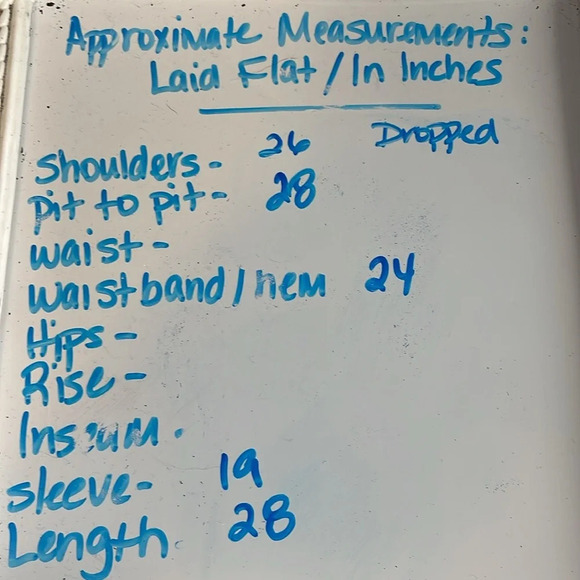 Approximate Measurements:
Laid Flat / In Inches
Shoulders - 26 Dropped
pit to pit - 28
waist -
waistband / hem 24
Hips -
Rise -
Inseam -
sleeve - 19
Length - 28